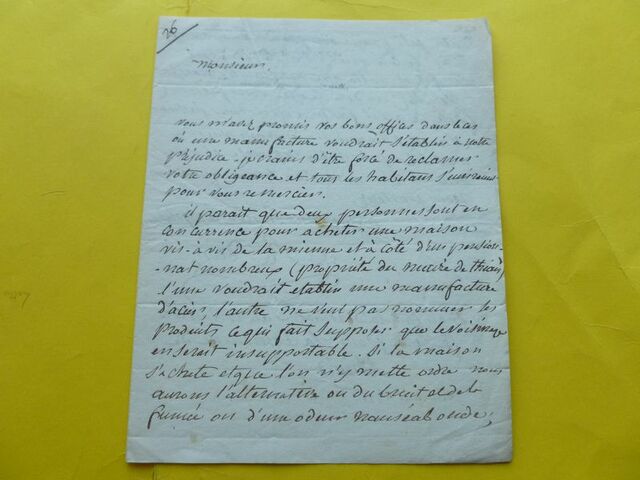 26
monsieur.
vous m'avez promis vos bons offices dans le cas
où une manufacture voudrait s'établir à notre
préjudice. je crains d'être forcé de reclamer
votre obligeance et tous les habitans s'uniront
pour vous remercier.
il parait que deux personnes sont en
concurrence pour acheter une maison
vis-à vis de la mienne et à côté d'un pension-
-nat nombreux (propriété du maire de
l'une voudrait etablir une manufacture
d'acier, l'autre ne veut pas nommer les
produits ce qui fait supposer que le voisinage
en serait insupportable. Si la maison
s'achete et que l'on n'y mette ordre nous
aurons l'alternative ou du bruit et de la
fumée ou d'une odeur nauséabonde,